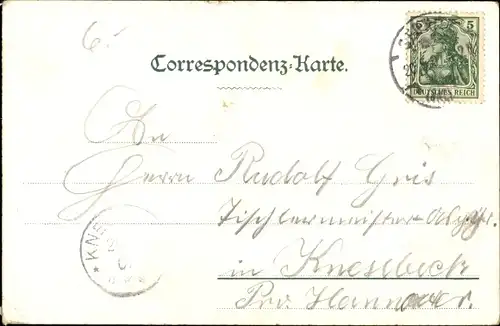 6.
5
Correspondenz-Karte.
DEUTSCHES REICH
An
Herrn Rudolf Gris
Tischlermeister
KNE
in Knesebeck
Prv. Hannover.